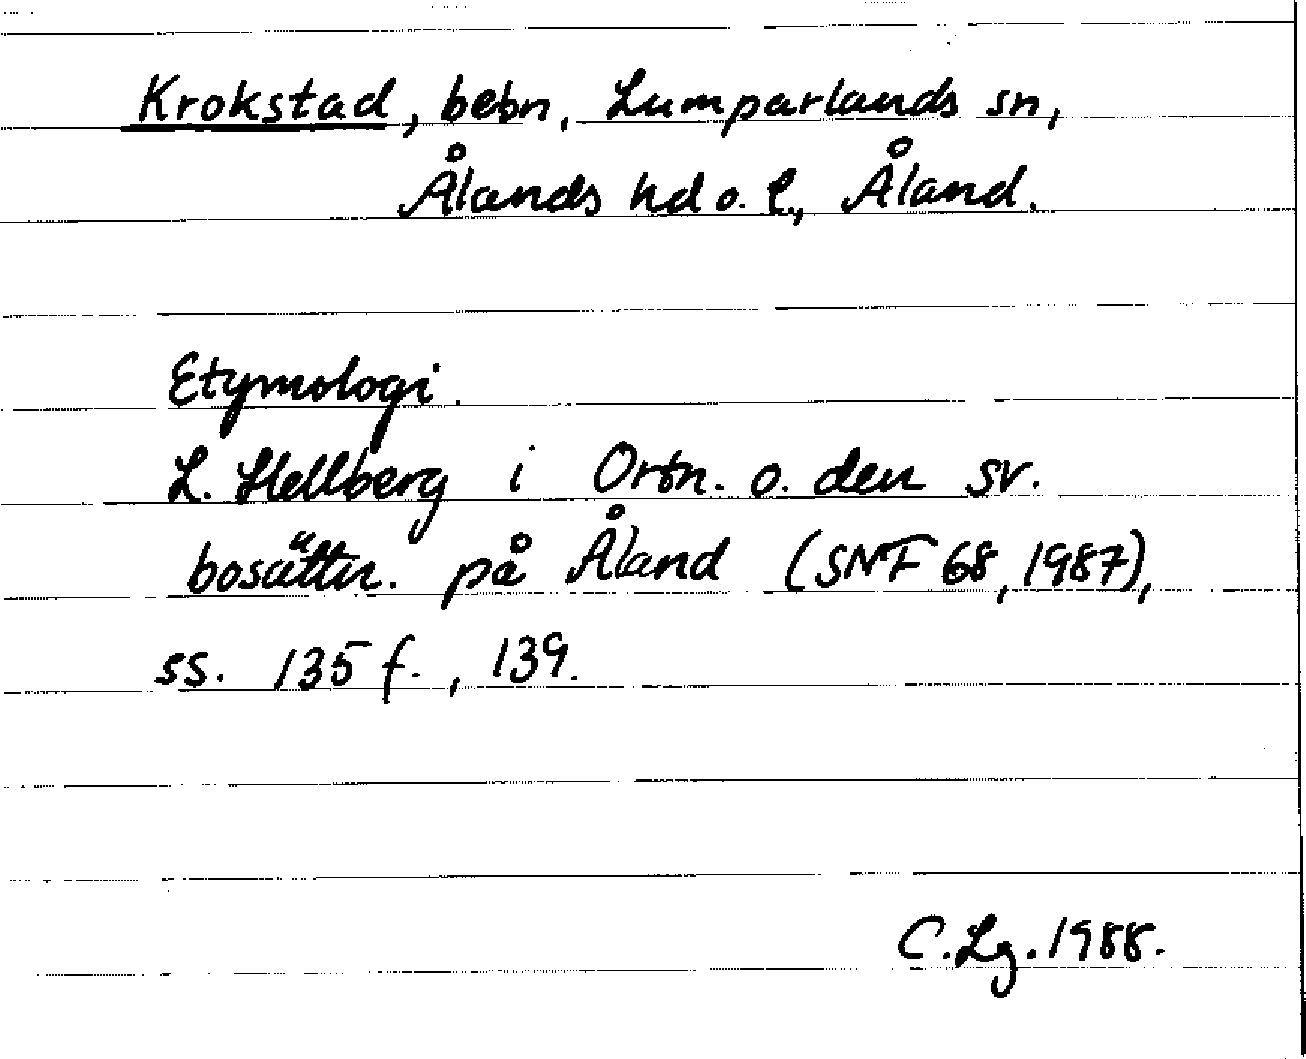 Krokstad, bebn, Lumparlands sn,
Ålands hd o. l., Åland.
Etymologi.
L. Hellberg i Ortn. o. den sv.
bosättn. på Åland (SNF 68, 1987),
ss. 135 f., 139.
C. Lg. 1988.